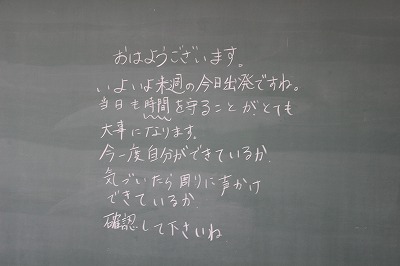 おはようございます。
いよいよ来週の今日出発ですね。
当日も時間を守ることがとても
大事になります。
今一度自分ができているか
気づいたら周りに声かけ
できているか
確認して下さいね